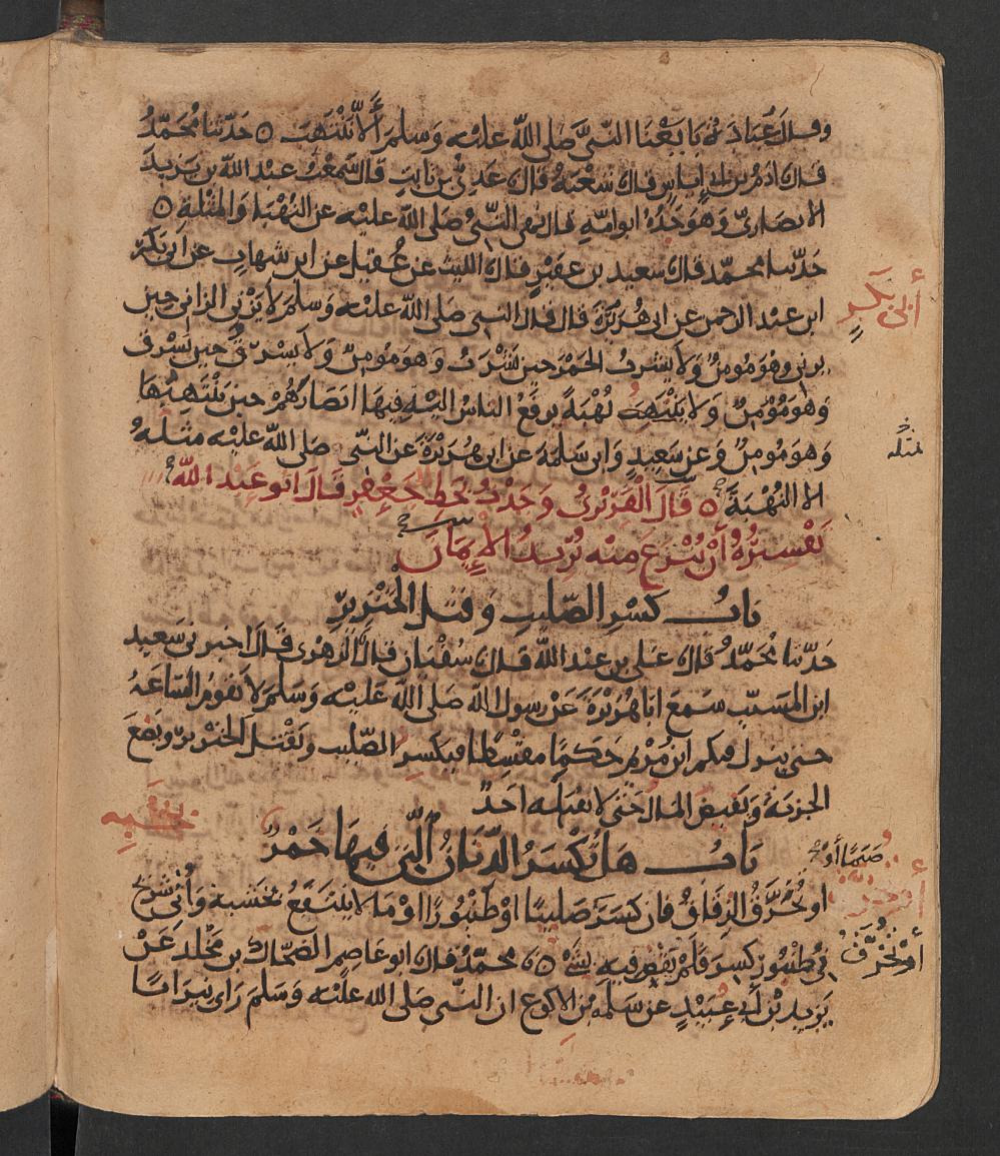 وقال عُبادة بايعنا النبيَّ صلى الله عليه وسلم ألّا ننتهب ٥ حدثنا محمد
قال آدم بن أبي إياس قال شعبة قال عدي بن ثابت قال سمعت عبد الله بن يزيد
الانصاري وهو جده ابو امه قال نهى النبي صلى الله عليه عن النهبا والمثلة ٥
حدثنا محمد قال سعيد بن عفير قال الليث عن عقيل عن ابن شهاب عن ابي بكر
ابن عبد الرحمن عن ابي هريرة قال قال النبي صلى الله عليه وسلم لا يزني الزاني حين
يزني وهو مومن ولا يشرب الخمر حين يشرب وهو مومن ولا يسرق حين يسرق
وهو مومن ولا ينتهب نهبة يرفع الناس اليه فيها ابصارهم حين ينتهبها
وهو مومن وعن سعيد وابي سلمة عن ابي هريرة عن النبي صلى الله عليه مثله
الا النهبة ٥ قال الفربري وجدت بخط جعفر قال ابو عبد الله
تفسيره أن ينزع منه يريد الإيمان
باب كسر الصليب وقتل الخنزير
حدثنا محمد قال علي بن عبد الله قال سفيان قال الزهري قال اخبرني سعيد
ابن المسيب سمع ابا هريرة عن رسول الله صلى الله عليه وسلم لا تقوم الساعة
حتى ينزل فيكم ابن مريم حكما مقسطا فيكسر الصليب ويقتل الخنزير ويضع
الجزية ويفيض المال حتى لا يقبله احد
باب هل تكسر الدنان التي فيها خمر
او تخرق الزقاق فان كسر صليبا او طنبورا او ما لا ينتفع بخشبه وأتي شريح
في طنبور كسر فلم يقض فيه بشي ٥ محمد قال ابو عاصم الضحاك بن مخلد عن
يزيد بن أبي عبيد عن سلمة بن الاكوع ان النبي صلى الله عليه وسلم راى نيرانا
أبي بكرٍ
بمثله
صنما أو
أو تخرق